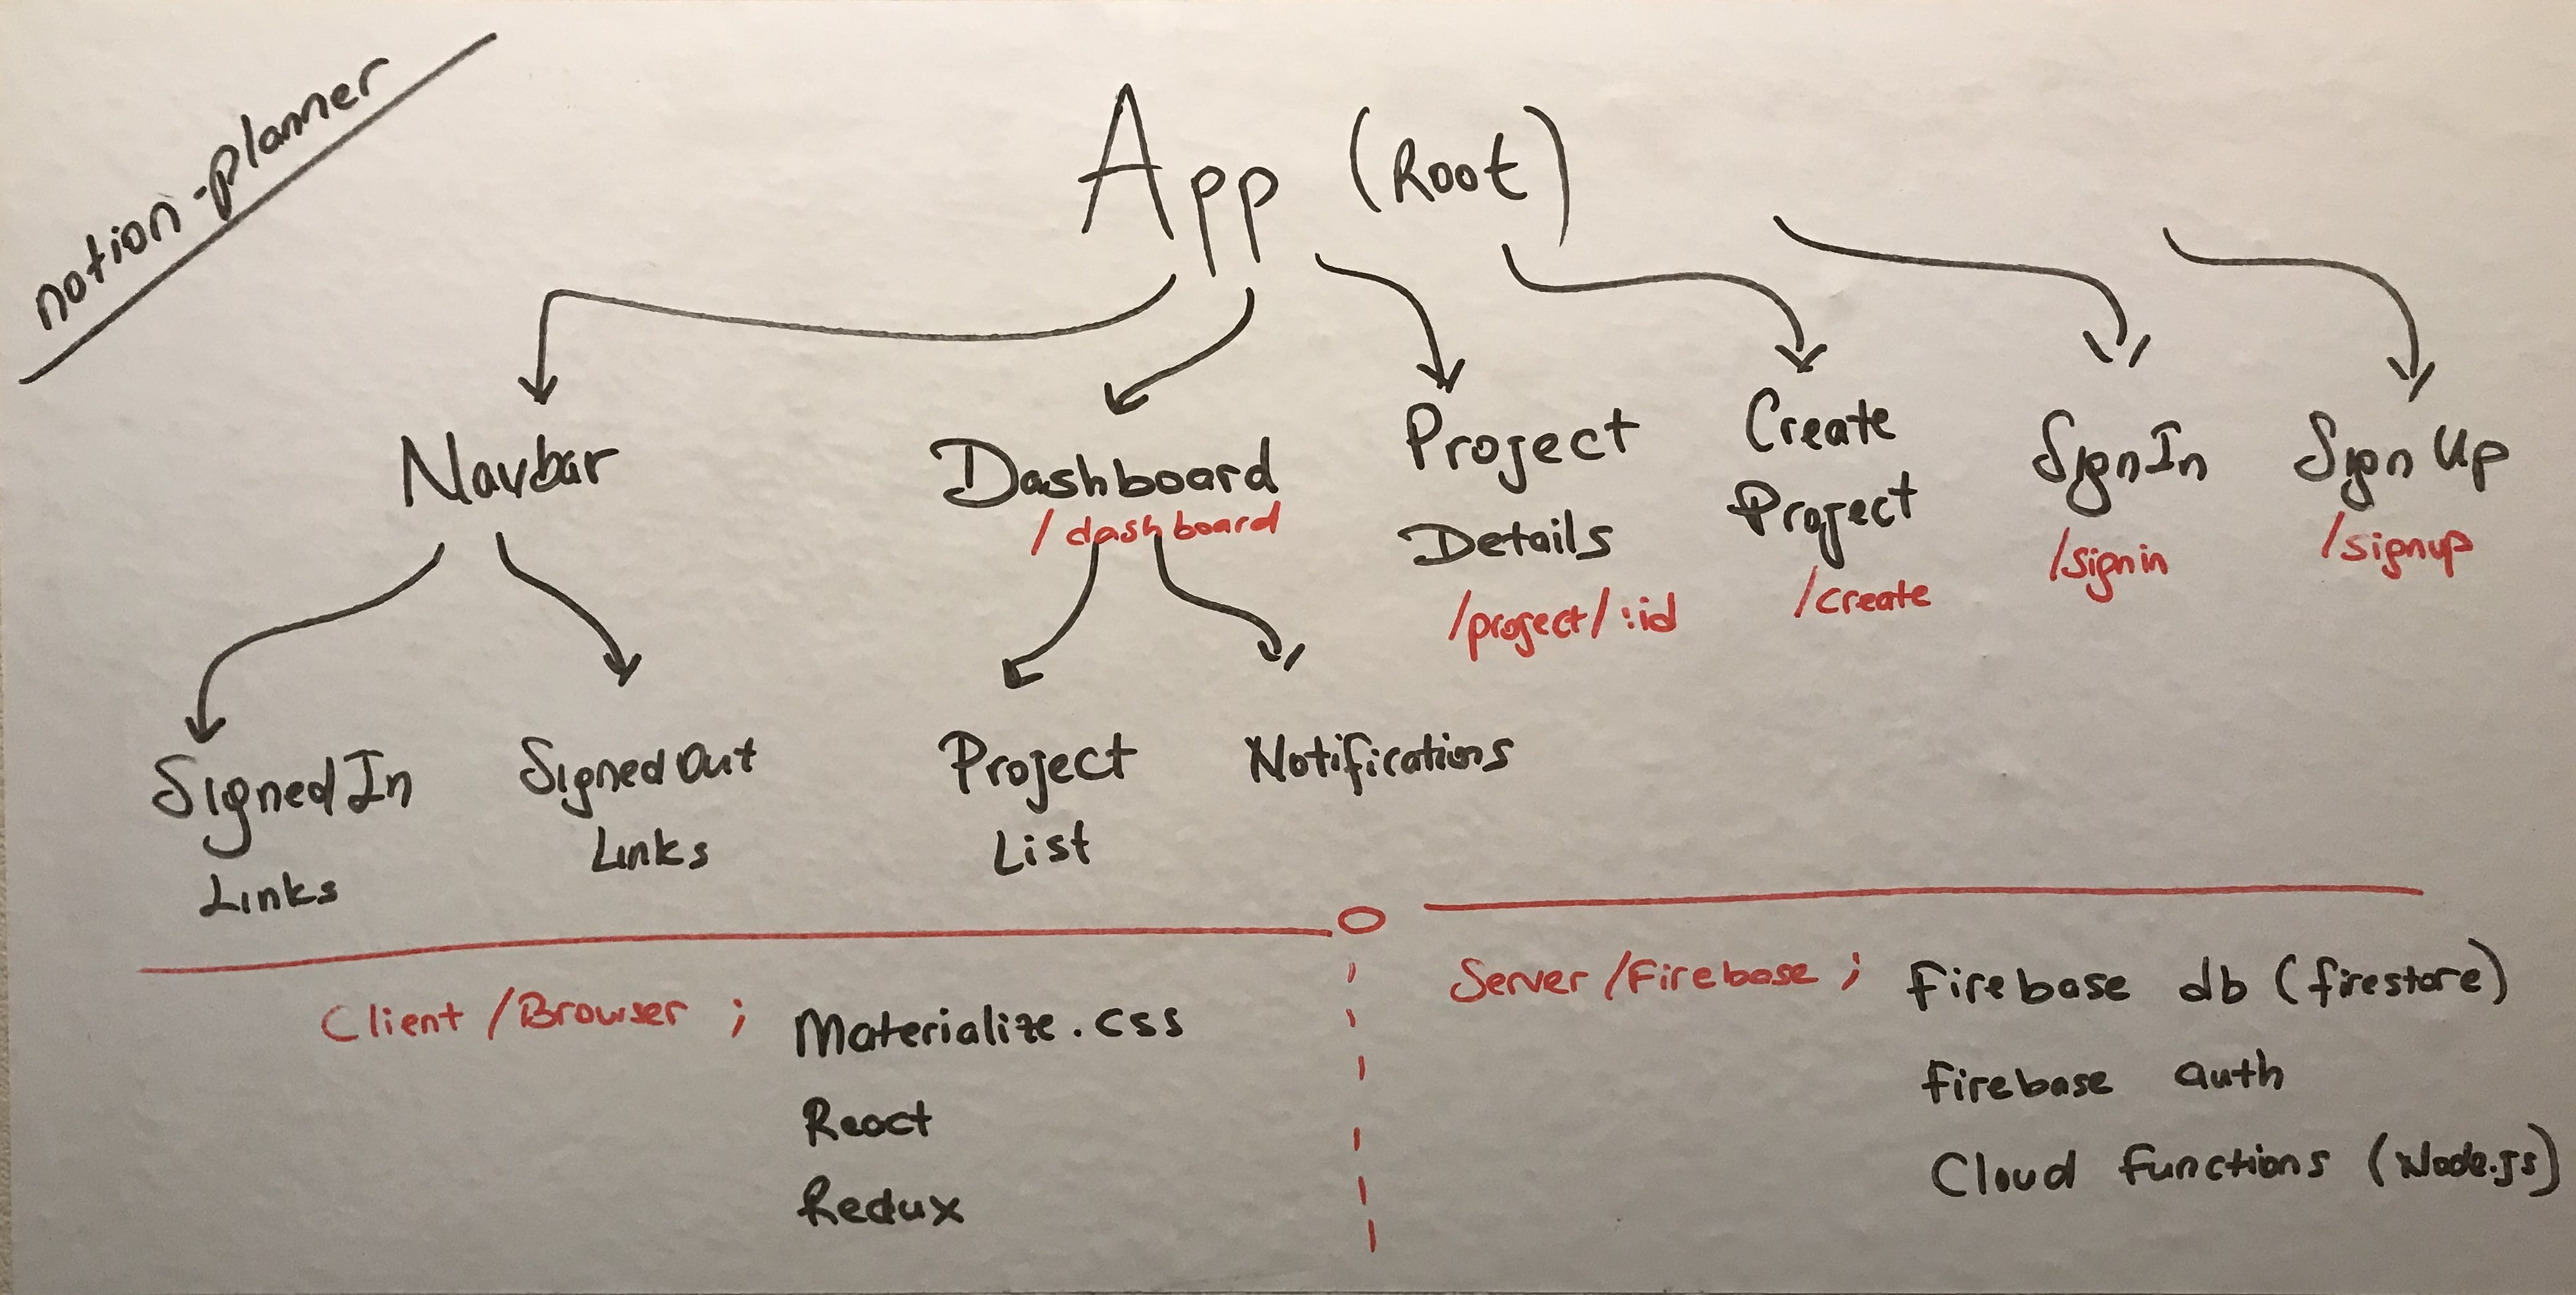 notion-planner
App (Root)
Navbar
Dashboard
/dashboard
Project
Details
/project/:id
Create
Project
/create
SignIn
/signin
Sign Up
/signup
SignedIn
Links
SignedOut
Links
Project
List
Notifications
Client /Browser ;
Materialize.css
React
Redux
Server /Firebase ;
Firebase db (firestore)
Firebase auth
Cloud functions (Node.js)